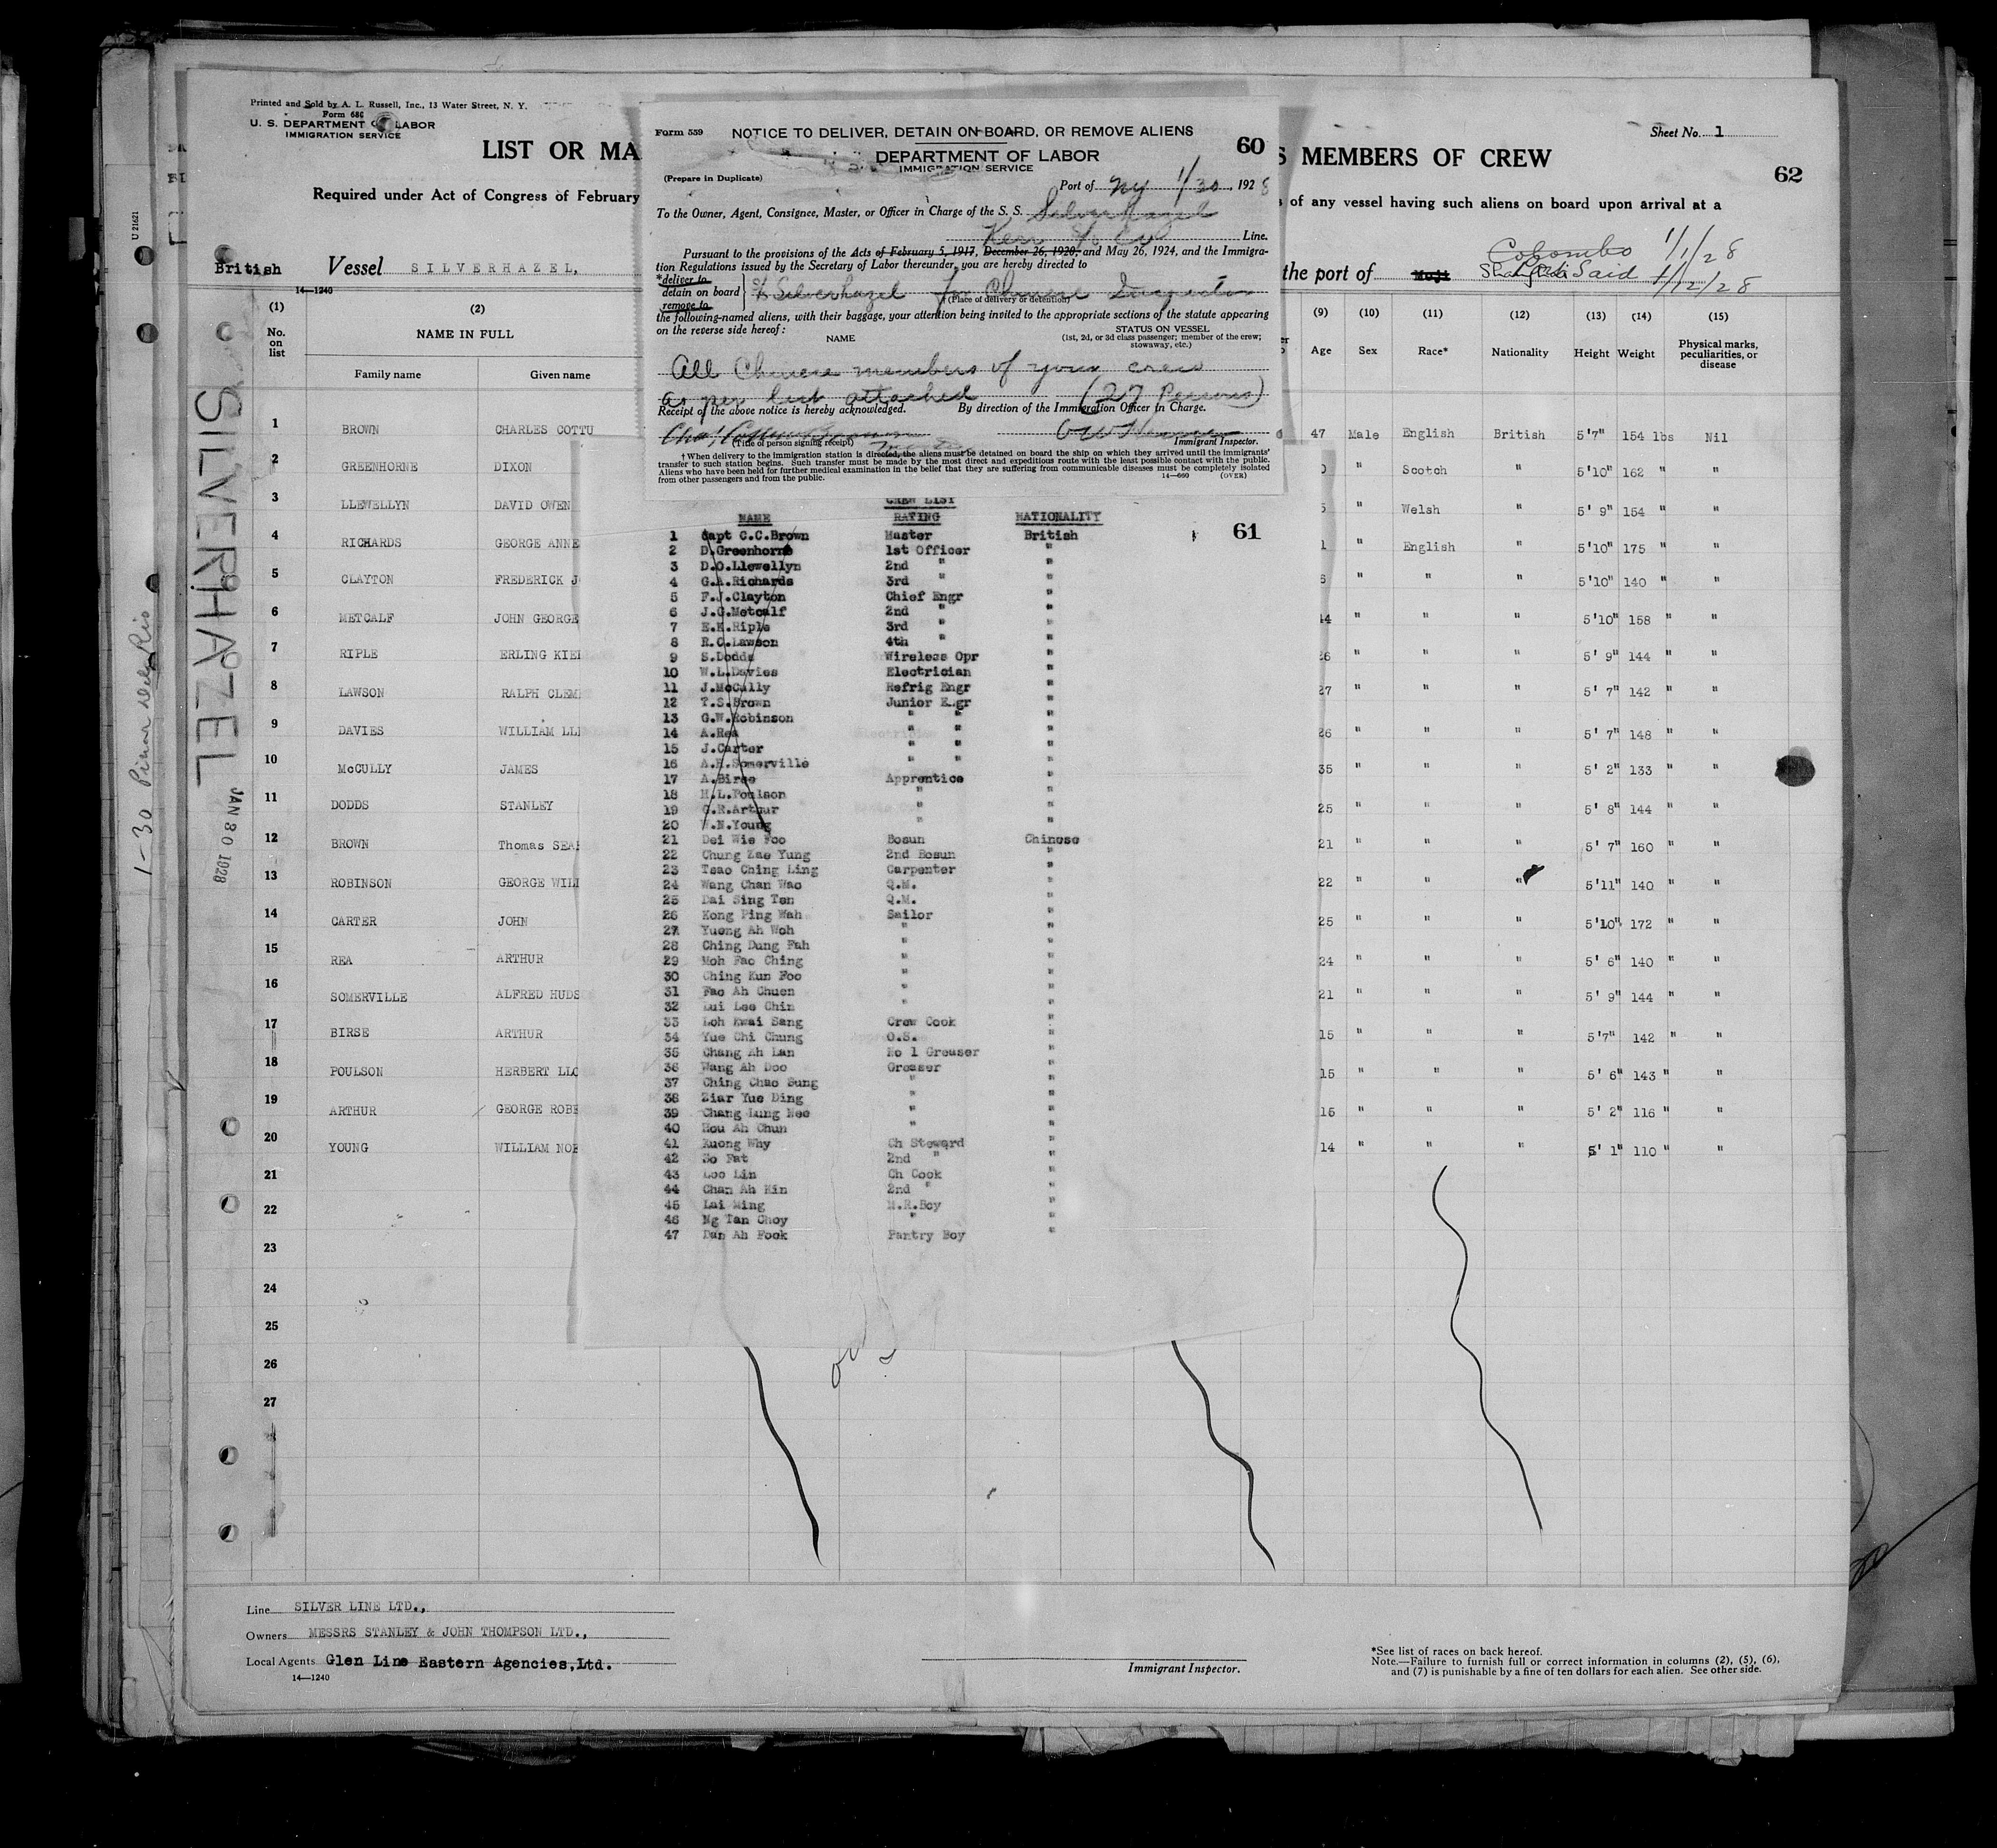 Printed and Sold by A. L. Russell, Inc., 13 Water Street, N. Y.
Form 680
U. S. DEPARTMENT OF LABOR
IMMIGRATION SERVICE
LIST OR MA
S MEMBERS OF CREW
Sheet No. 1
62
Required under Act of Congress of February
s of any vessel having such aliens on board upon arrival at a
British Vessel SILVERHAZEL,
the port of Moji Shanghai
Colombo 1/1/28
Port Said 1/12/28
14—1240
Form 559
NOTICE TO DELIVER, DETAIN ON BOARD, OR REMOVE ALIENS
60
DEPARTMENT OF LABOR
IMMIGRATION SERVICE
(Prepare in Duplicate)
Port of NY 1/30, 1928
To the Owner, Agent, Consignee, Master, or Officer in Charge of the S. S. Silverhazel
Kerr Line.
Pursuant to the provisions of the Acts of February 5, 1917, December 26, 1920, and May 26, 1924, and the Immigra-
tion Regulations issued by the Secretary of Labor thereunder, you are hereby directed to
*deliver to
detain on board
remove to
Silverhazel for Chinese Inspector
(Place of delivery or detention)
the following-named aliens, with their baggage, your attention being invited to the appropriate sections of the statute appearing
on the reverse side hereof:
NAME
STATUS ON VESSEL
(1st, 2d, or 3d class passenger; member of the crew;
stowaway, etc.)
All Chinese members of your crew
as per list attached (27 Persons)
Receipt of the above notice is hereby acknowledged. By direction of the Immigration Officer in Charge.
Chas Cottew Brown
(Title of person signing receipt)
Immigrant Inspector.
† When delivery to the immigration station is directed, the aliens must be detained on board the ship on which they arrived until the immigrants'
transfer to such station begins. Such transfer must be made by the most direct and expeditious route with the least possible contact with the public.
Aliens who have been held for further medical examination in the belief that they are suffering from communicable diseases must be completely isolated
from other passengers and from the public.
14—660 (OVER)
CREW LIST
NAME RATING NATIONALITY
61
1 Capt C.C.Brown Master British
2 D.Greenhorne 1st Officer "
3 D.O.Llewellyn 2nd " "
4 G.A.Richards 3rd " "
5 F.J.Clayton Chief Engr "
6 J.G.Metcalf 2nd " "
7 E.K.Riple 3rd " "
8 R.C.Lawson 4th " "
9 S.Dodds Wireless Opr "
10 W.L.Davies Electrician "
11 J.McCully Refrig Engr "
12 T.S.Brown Junior Engr "
13 G.W.Robinson " " "
14 A.Rea " " "
15 J.Carter " " "
16 A.H.Somerville " " "
17 A.Birse Apprentice "
18 H.L.Poulson " "
19 G.R.Arthur " "
20 W.N.Young " "
21 Dei Wie Foo Bosun Chinese
22 Chung Zae Yung 2nd Bosun "
23 Tsao Ching Ling Carpenter "
24 Wang Chan Wao Q.M. "
25 Dai Sing Ten Q.M. "
26 Kong Ping Wah Sailor "
27 Yuong Ah Woh " "
28 Ching Dung Fah " "
29 Moh Fao Ching " "
30 Ching Kun Foo " "
31 Fao Ah Chuen " "
32 Lui Lee Chin " "
33 Loh Kwai Sang Crew Cook "
34 Yue Chi Chung O.S. "
35 Chang Ah Lan No 1 Greaser "
36 Wang Ah Doo Greaser "
37 Ching Chao Sung " "
38 Ziar Yue Ding " "
39 Chang Lung Nee " "
40 Hou Ah Chun " "
41 Kuong Why Ch Steward "
42 So Fat 2nd " "
43 Loo Lin Ch Cook "
44 Chan Ah Kin 2nd " "
45 Lai Ming M.R.Boy "
46 Ng Tan Choy " "
47 Dan Ah Fook Pantry Boy "
(1) (2) (9) (10) (11) (12) (13) (14) (15)
No. on list
NAME IN FULL
Family name Given name
Age Sex Race* Nationality Height Weight Physical marks, peculiarities, or disease
1 BROWN CHARLES COTTU 47 Male English British 5'7" 154 lbs Nil
2 GREENHORNE DIXON 0 " Scotch " 5'10" 162 " "
3 LLEWELLYN DAVID OWEN 5 " Welsh " 5' 9" 154 " "
4 RICHARDS GEORGE ANNE 1 " English " 5'10" 175 " "
5 CLAYTON FREDERICK J 6 " " " 5'10" 140 " "
6 METCALF JOHN GEORGE 44 " " " 5'10" 158 " "
7 RIPLE ERLING KIE 26 " " " 5' 9" 144 " "
8 LAWSON RALPH CLEM 27 " " " 5' 7" 142 " "
9 DAVIES WILLIAM LL 26 " " " 5' 7" 148 " "
10 McCULLY JAMES 35 " " " 5' 2" 133 " "
11 DODDS STANLEY 25 " " " 5' 8" 144 " "
12 BROWN Thomas SEA 21 " " " 5' 7" 160 " "
13 ROBINSON GEORGE WILL 22 " " " 5'11" 140 " "
14 CARTER JOHN 25 " " " 5'10" 172 " "
15 REA ARTHUR 24 " " " 5' 6" 140 " "
16 SOMERVILLE ALFRED HUDS 21 " " " 5' 9" 144 " "
17 BIRSE ARTHUR 15 " " " 5'7" 142 " "
18 POULSON HERBERT LLO 15 " " " 5' 6" 143 " "
19 ARTHUR GEORGE ROBE 15 " " " 5' 2" 116 " "
20 YOUNG WILLIAM NOB 14 " " " 5' 1" 110 " "
21
22
23
24
25
26
27
28
SILVERHAZEL
JAN 30 1928
1-30 Pinar Del Rio
U 21621
Line SILVER LINE LTD.,
Owners MESSRS STANLEY & JOHN THOMPSON LTD.,
Local Agents Glen Line Eastern Agencies,Ltd.
14—1240
Immigrant Inspector.
*See list of races on back hereof.
Note.—Failure to furnish full or correct information in columns (2), (5), (6),
and (7) is punishable by a fine of ten dollars for each alien. See other side.